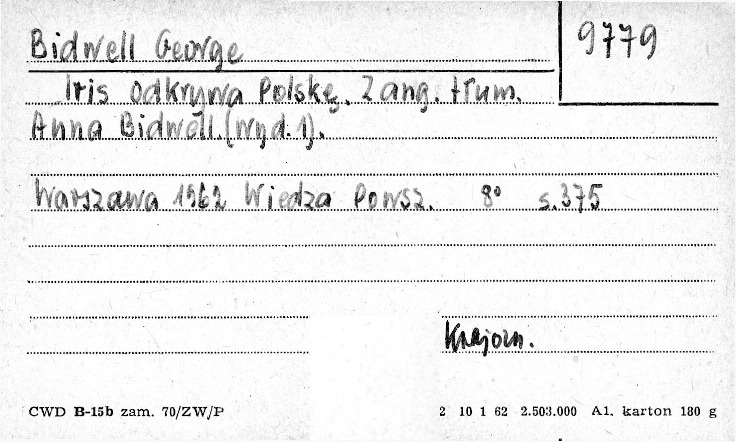 Bidwell George
9779
Iris odkrywa Polskę. Z ang. tłum.
Anna Bidwell. (Wyd. 1).
Warszawa 1962 Wiedza Powsz. 8° s. 375
Krajozn.
CWD B-15b zam. 70/ZW/P
2 10 1 62 2.503.000 A1. karton 180 g